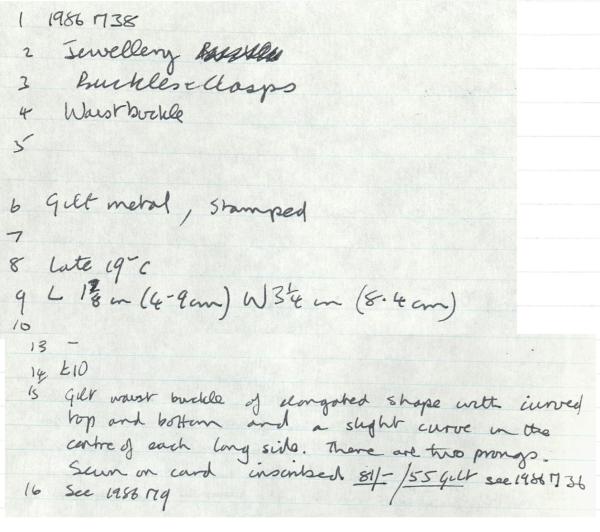 1 1986 M38
2 Jewellery
3 Buckles & Clasps
4 Waist buckle
5
6 Gilt metal, stamped
7
8 Late 19th C
9 L 1⅞ in (4.9cm) W 3¼ in (8.4cm)
10
13 -
14 £10
15 Gilt waist buckle of elongated shape with curved
top and bottom and a slight curve in the
centre of each long side. There are two prongs.
Sewn on card inscribed 81/- /55 Gilt see 1986 M36
16 See 1986 M9